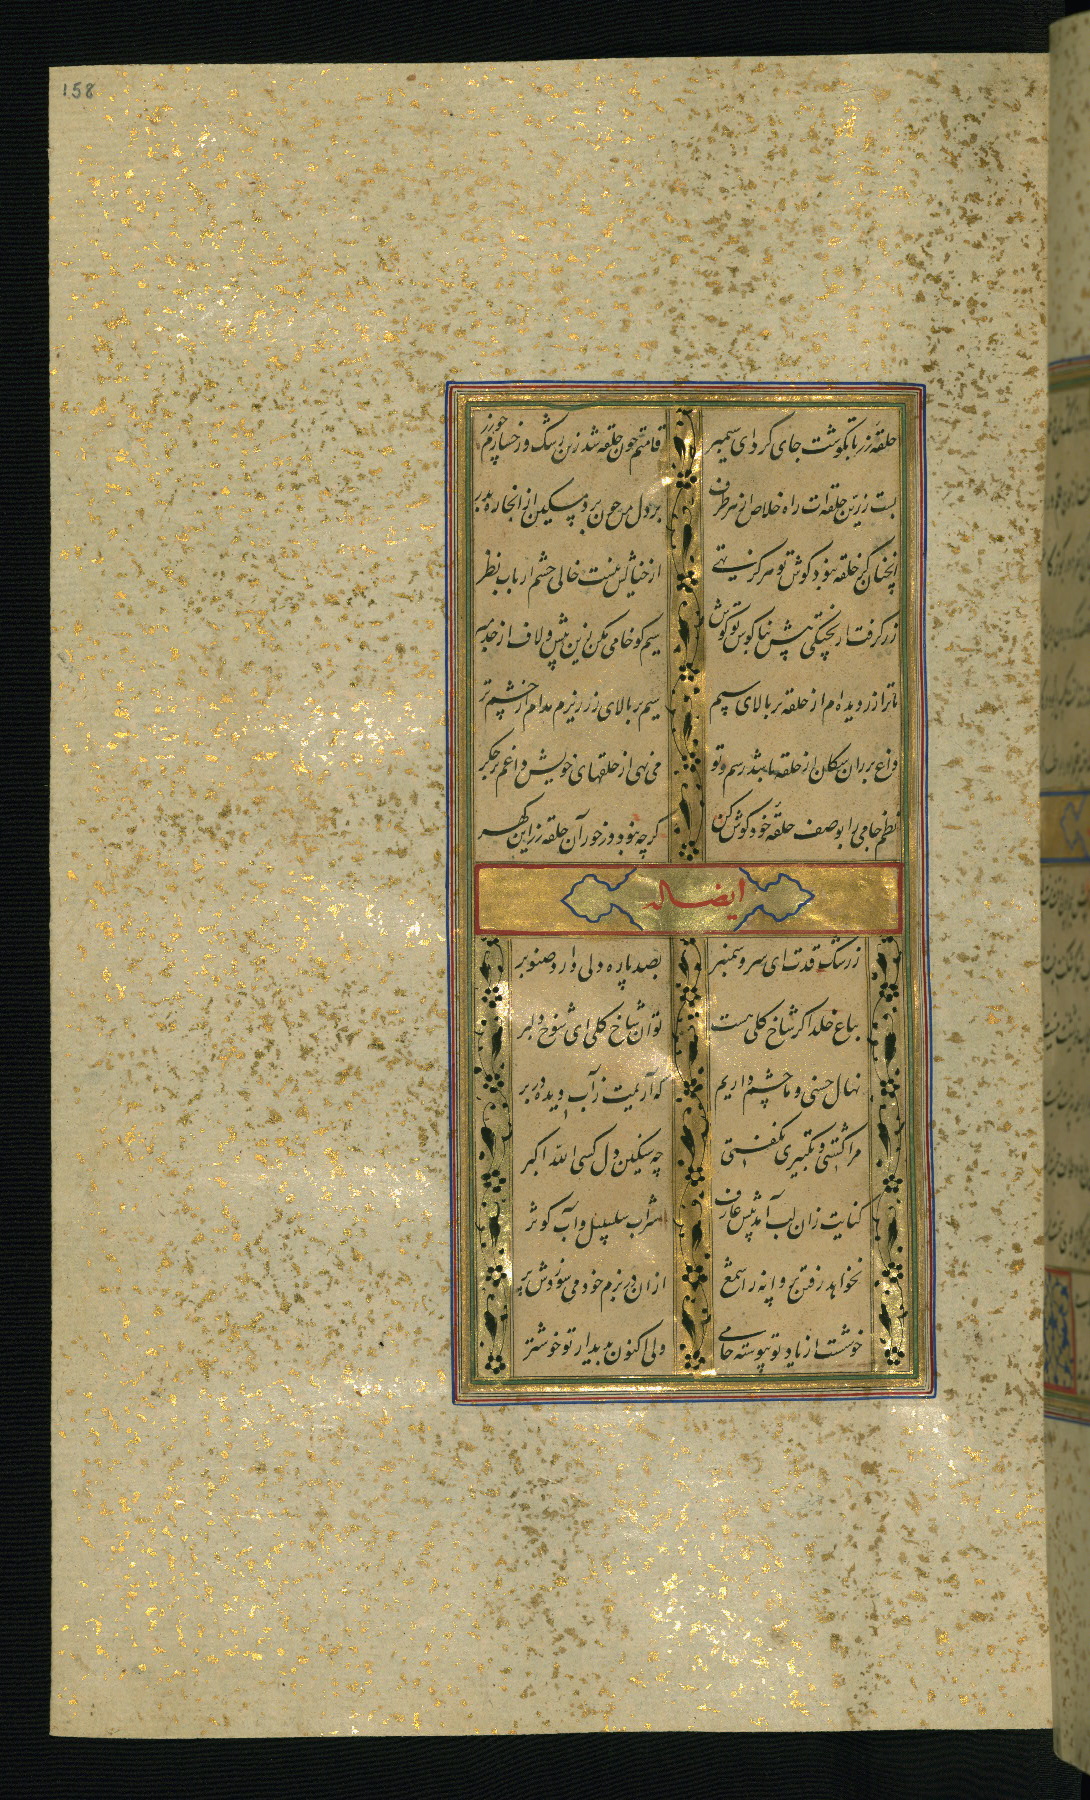 158
حلقهٔ زر تا بگوشت جای کرد ای سیمبر
قامتم چون حلقه شد زین رشک و رخسارم چو زر
بست زرین حلقه‌ات راه خلاص از هر طرف
برد دل من چون برد مسکین از انجا ره بدر
انچنان کز حلقه نبود گوش تو هرگز تهی
از خیالش نیست خالی چشم ارباب نظر
زر گرفتار یختگی پیش بناگوش تو گوش
سیم کو خامی مکن زین بیش و لاف از خود مبر
تا ترا زر دیده‌ام از حلقه بر بالای سیم
سیم بر بالای زر ریزم مدام از چشم تر
داغ بر ران سکان از حلقه باشد رسم و تو
می نهی از حلقهای خویش داغم بر جگر
نظم جامی را بوصف حلقهٔ خود گوش کن
گرچه نبود در خور آن حلقه زر این گهر
ایضا له
ز رشک قدت ای سرو سمنبر
بصد پاره دلی دارد صنوبر
بباغ خلد اگر شاخ گلی هست
تو آن شاخ گلی ای شوخ دلبر
نهال حسنی و ما چشم داریم
که آریمت ز آب دیده در بر
مرا کشتی و تکبیری نگفتی
چه سنگین دل کسی الله اکبر
کنایت زان لب آمد پیش عارف
شراب سلسبیل و آب کوثر
نخواهد رفت پروانه ز شمع
ازان در بزم خود می سوزدش پر
خوشست از یاد تو پیوسته جامی
ولی اکنون بدیدار تو خوشتر